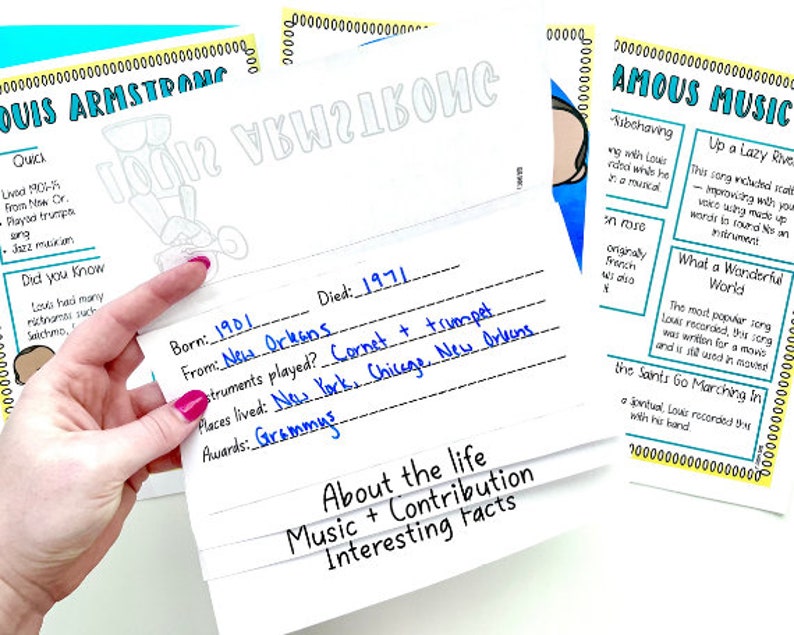 LOUIS ARMSTRONG
Quick
Lived 1901-19
From New Or
Played trumpet
song
Jazz musician
Did you Know
Louis had many
nicknames such
Satchmo,
LOUIS ARMSTRONG
Born: 1901
Died: 1971
From: New Orleans
nstruments played? Cornet + trumpet
Places lived: New York, Chicago, New Orleans
Awards: Grammys
About the life
Music + Contribution
Interesting Facts
AMOUS MUSIC
Misbehaving
ng with Louis
rded while he
in a musical.
en rose
originally
French
uis also
Up a Lazy River
This song included scatting
— improvising with your
voice using made up
words to sound like an
instrument.
What a Wonderful
World
The most popular song
Louis recorded, this song
was written for a movie
and is still used in movies!
the Saints Go Marching In
a spiritual, Louis recorded this
with his band.